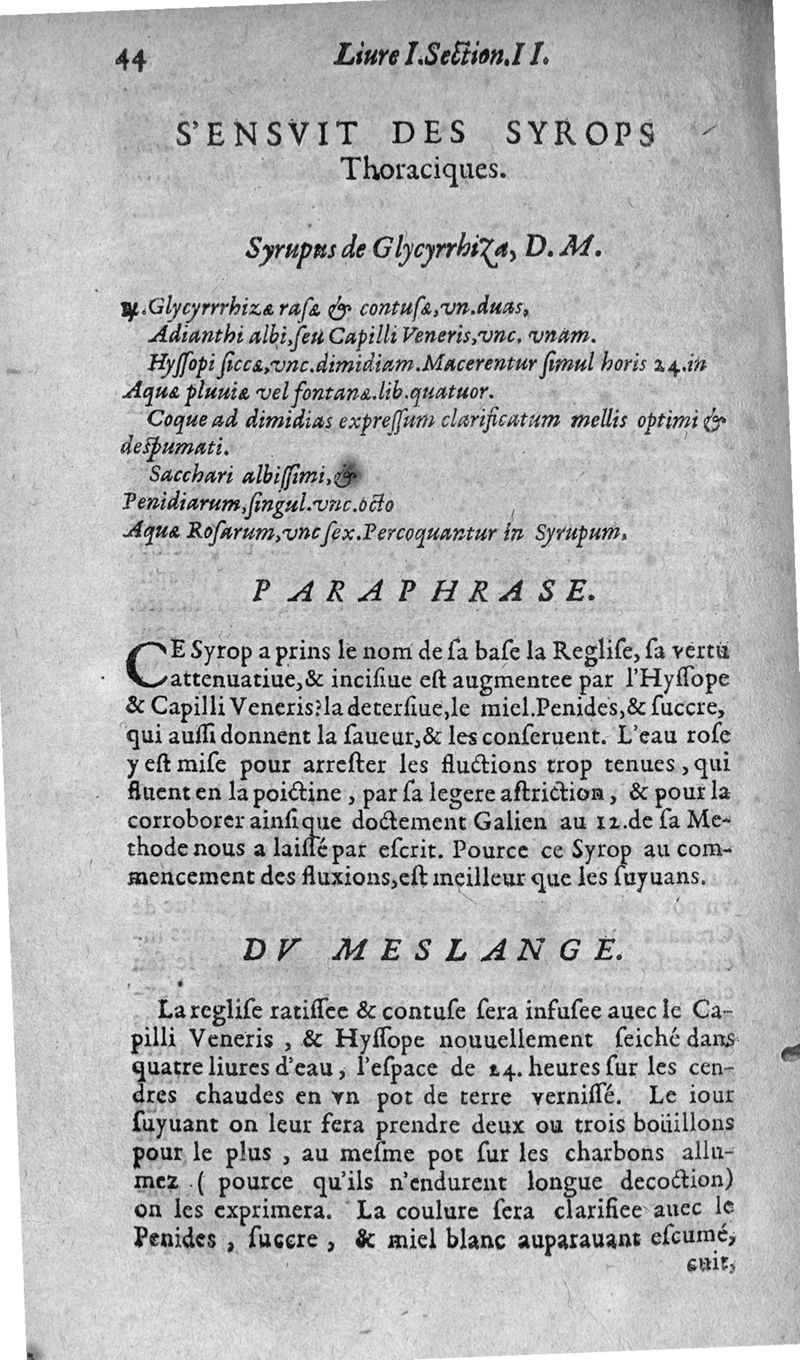 44 Liure I.Section.II.
S'ENSVIT DES SYROPS
Thoraciques.
Syrupus de Glycyrrhiza, D. M.
℞.Glycyrrrhizæ rasæ & contusæ,vn.duas,
Adianthi albi,seu Capilli Veneris,vnc. vnam.
Hyſſopi ſiccæ,vnc.dimidiam.Macerentur ſimul horis 24.in
Aquæ pluuiæ vel fontanæ.lib.quatuor.
Coque ad dimidias expreſſum clarificatum mellis optimi &
deſpumati.
Sacchari albiſſimi,&
Penidiarum,ſingul.vnc.octo
Aquæ Roſarum,vnc ſex.Percoquantur in Syrupum.
PARAPHRASE.
CE Syrop a prins le nom de ſa baſe la Regliſe, ſa vertu
attenuatiue,& inciſiue eſt augmentee par l'Hyſſope
& Capilli Veneris:la deterſiue,le miel.Penides,& ſuccre,
qui auſſi donnent la ſaueur,& les conſeruent. L'eau roſe
y eſt miſe pour arreſter les fluctions trop tenues , qui
fluent en la poictine , par ſa legere aſtriction , & pour la
corroborer ainſique doctement Galien au 12.de ſa Me-
thode nous a laiſſé par eſcrit. Pource ce Syrop au com-
mencement des fluxions,eſt meilleur que les ſuyuans.
DV MESLANGE.
La regliſe ratiſſee & contuſe ſera infuſee auec le Ca-
pilli Veneris , & Hyſſope nouuellement ſeiché dans
quatre liures d'eau, l'eſpace de 24. heures ſur les cen-
dres chaudes en vn pot de terre verniſſé. Le iour
ſuyuant on leur fera prendre deux ou trois boüillons
pour le plus , au meſme pot ſur les charbons allu-
mez ( pource qu'ils n'endurent longue decoction)
on les exprimera. La coulure ſera clarifiee auec le
Penides , ſuccre , & miel blanc auparauant eſcumé,
cuit,